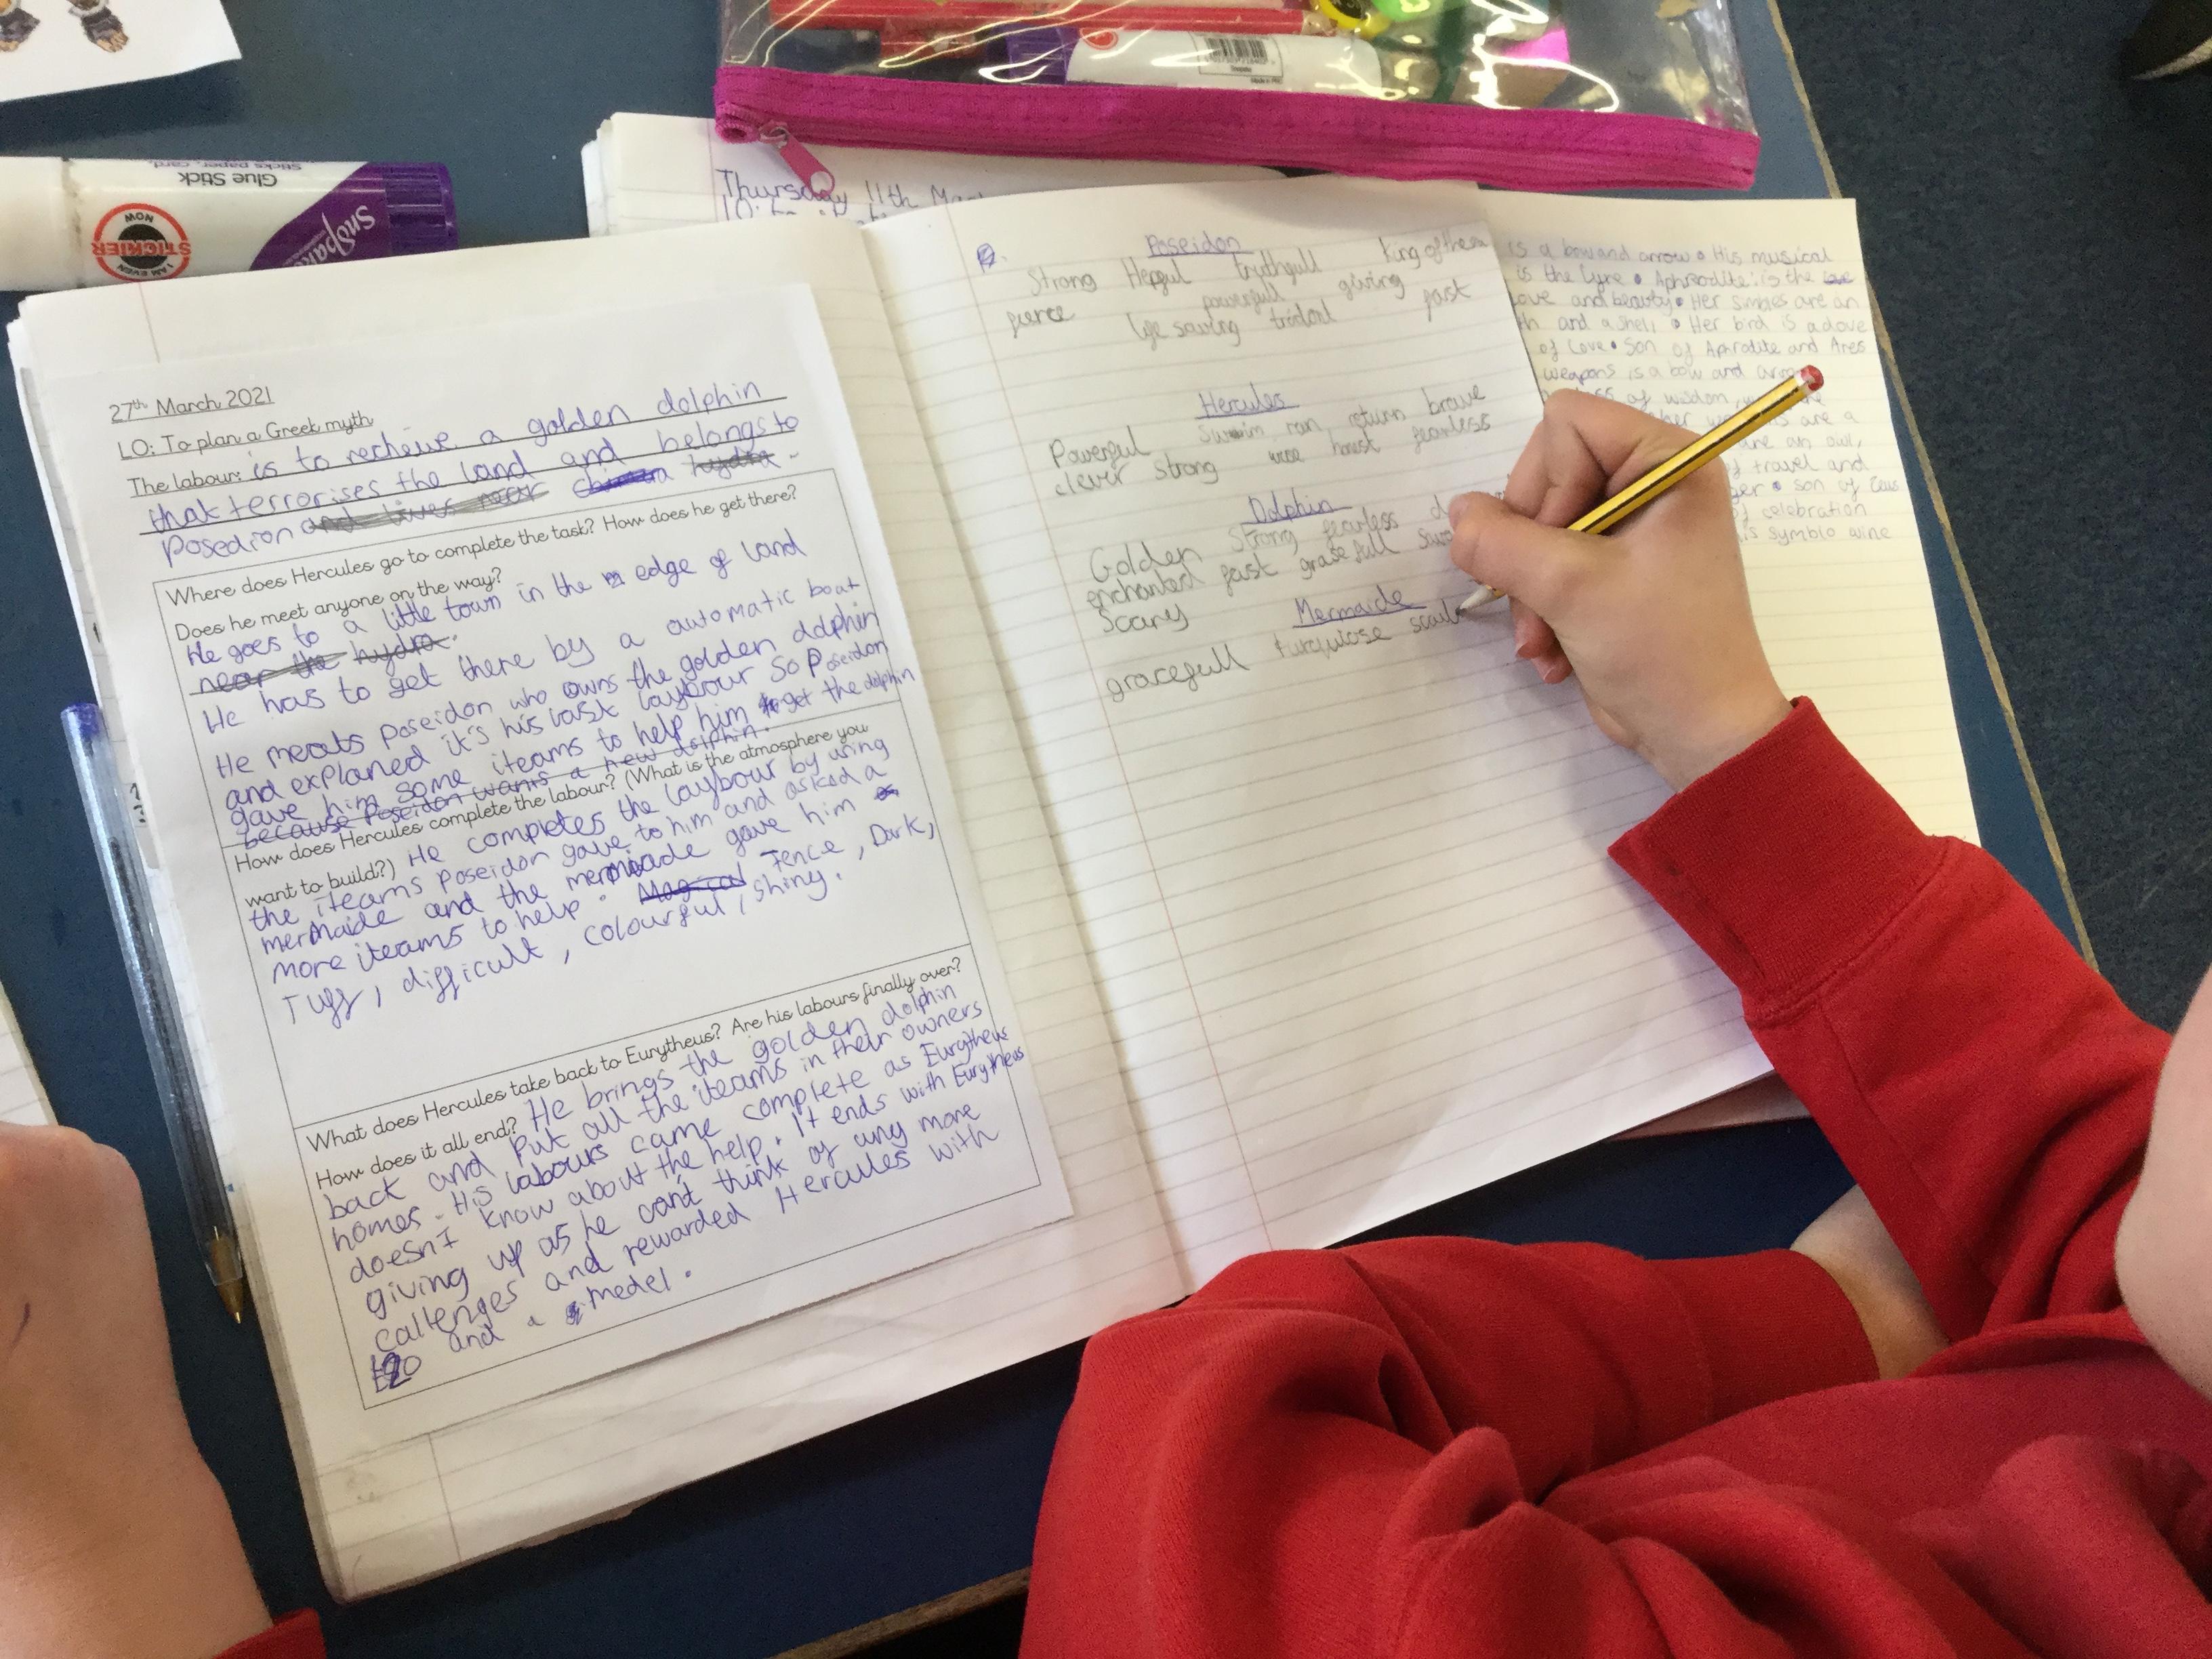 27th March 2021
LO: To plan a Greek myth
The labour: is to recheive a golden dolphin
that terrorises the land and belongs to
Posedion and lives near hydra.
Where does Hercules go to complete the task? How does he get there?
Does he meet anyone on the way?
He goes to a little town in the edge of land
near the hydra.
He has to get there by a automatic boat
He meats Poseidon who owns the golden dolphin
and explaned it's his last laybour so Poseidon
gave him some iteams to help him get the dolphin
because Poseidon wants a new dolphin.
How does Hercules complete the labour? (What is the atmosphere you
want to build?) He completes the laybour by using
the iteams Poseidon gave to him and asked a
mermaide and the mermaide gave him
more iteams to help. Magical Tence, Dark,
Tuff, difficult, colourful, shiny.
What does Hercules take back to Eurytheus? Are his labours finally over?
How does it all end? He brings the golden dolphin
back and put all the iteams in their owners
homes. His labours came complete as Eurytheus
doesnt know about the help. It ends with Eurytheus
giving up as he cant think of any more
callenges and rewarded Hercules with
20 and a medel.
Poseidon
Strong Helpful truthfull King of the sea
powerfull giving
fierce life saving trident fast
Hercules
Powerful swim ran return brave
clever strong wise honest fearless
Dolphin
Golden Strong fearless
enchanted fast gratefull
Scary
Mermaide
gracefull turquiose
Thursday 11th
is a bow and arrow. His musical
is the lyre. Aphrodite: is the
love and beauty. Her simbles are an
and a shell. Her bird is a dove
of Love. Son of Aphrodite and Ares
weapons is a bow and arrow
of wisdom,
are a
are an owl,
of travel and
son of Zeus
of celebration
symblo wine
Glue Stick
Sticks paper, card,
I AM EVEN
STICKIER
NOW